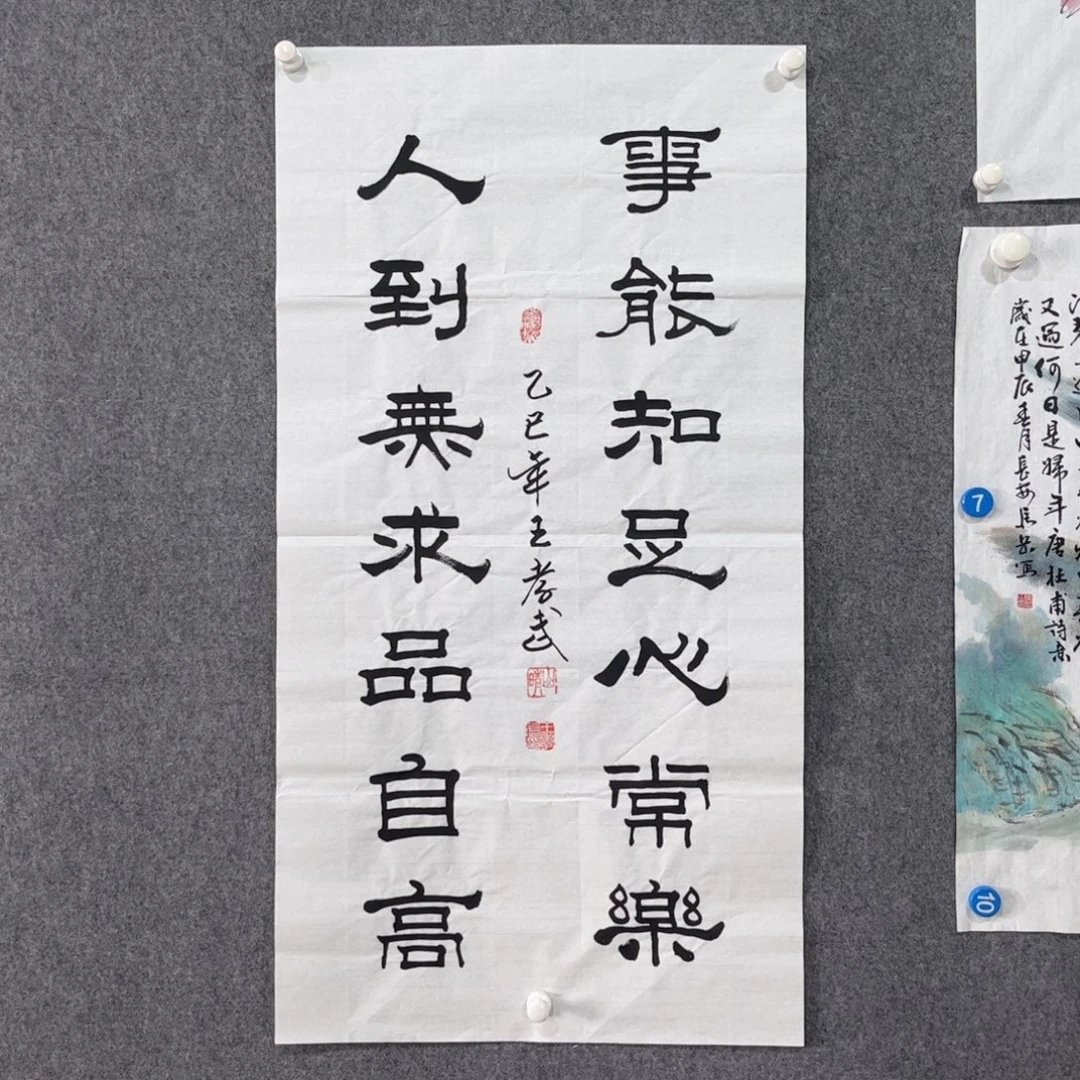 事能知足心常樂
乙巳年王孝武
人到無求品自高
又過何日是歸年唐杜甫詩意
歲在甲辰春月長安
7
10